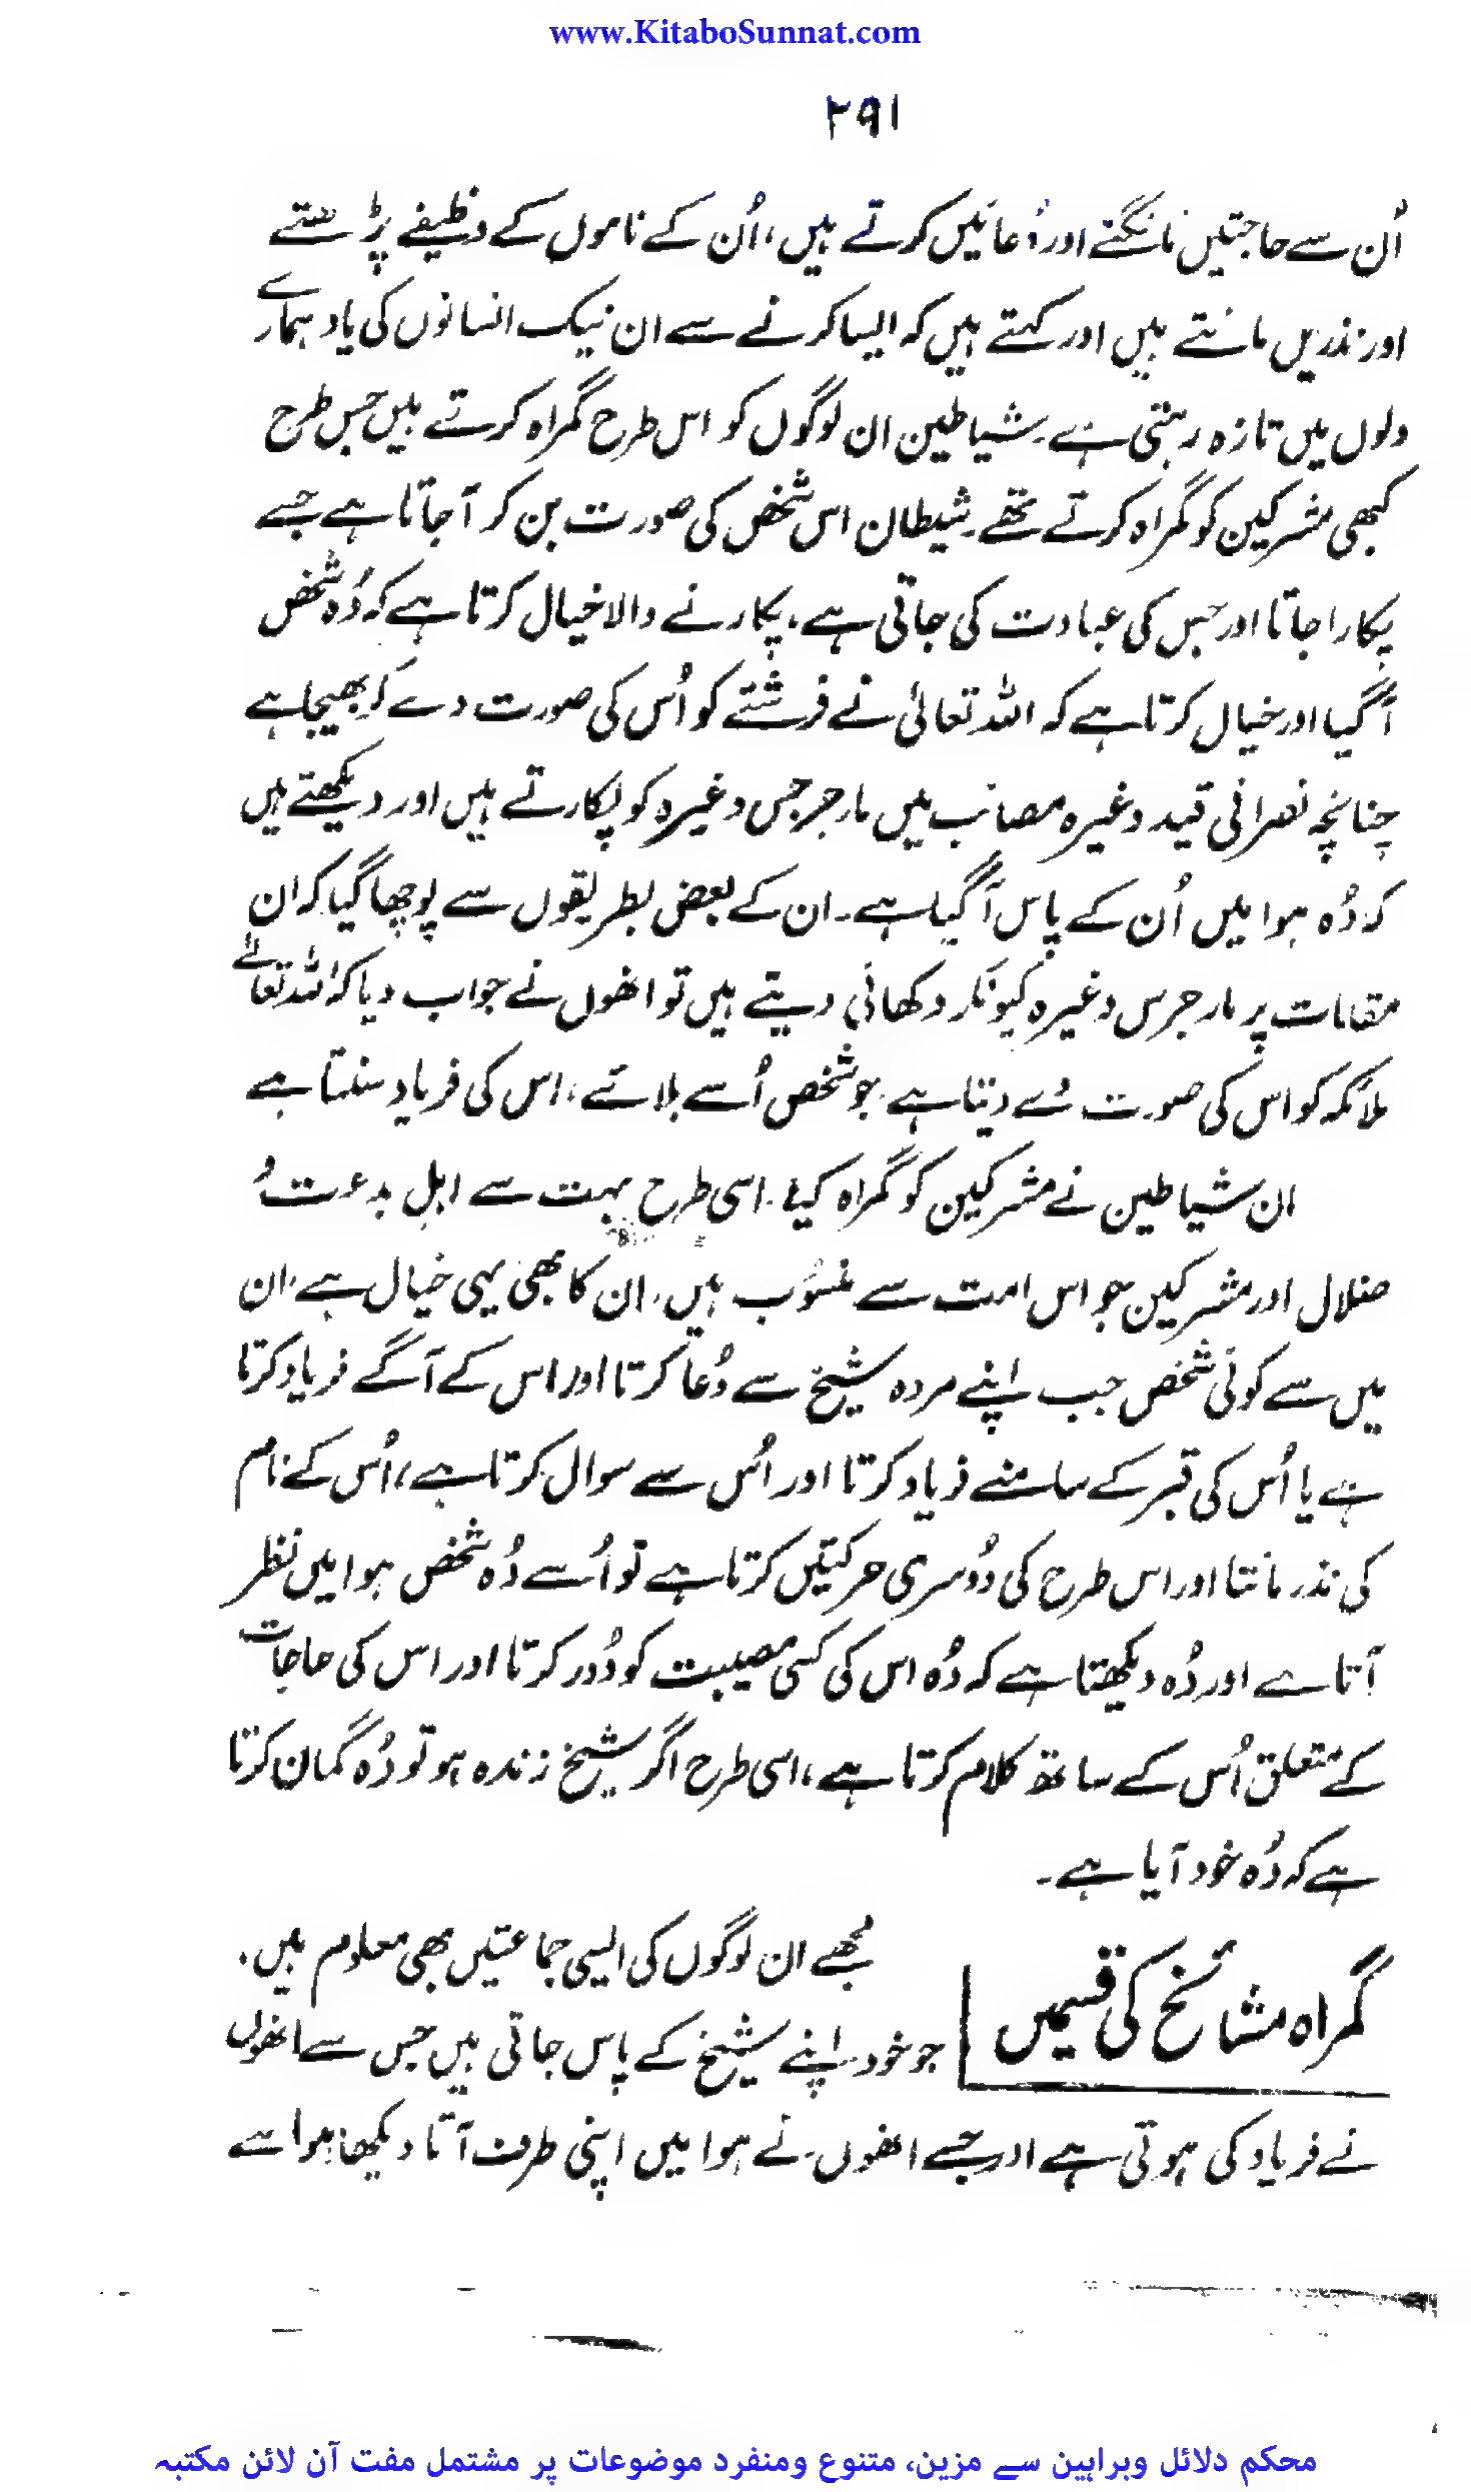 www.KitaboSunnat.com
۲۹۱
اُن سے حاجتیں مانگتے اور دُعائیں کرتے ہیں، اُن کے ناموں کے وظیفے پڑھتے
اور نذریں مانتے ہیں اور کہتے ہیں کہ ایسا کرنے سے ان نیک انسانوں کی یاد ہمارے
دلوں میں تازہ رہتی ہے۔ شیاطین ان لوگوں کو اس طرح گمراہ کرتے ہیں جس طرح
کبھی مشرکین کو گمراہ کرتے تھے۔ شیطان اس شخص کی صورت بن کر آجاتا ہے جسے
پکارا جاتا اور جس کی عبادت کی جاتی ہے، پکارنے والا خیال کرتا ہے کہ وُہ شخص
آگیا اور خیال کرتا ہے کہ اللہ تعالیٰ نے فرشتے کو اُس کی صورت دے کر بھیجا ہے
چنانچہ نصرانی قید وغیرہ مصائب میں مارجرجس وغیرہ کو پکارتے ہیں اور دیکھتے ہیں
کہ وُہ ہوا میں اُن کے پاس آگیا ہے۔ ان کے بعض بطریقوں سے پوچھا گیا کہ ان
مقامات پر مارجرس وغیرہ کیونکر دکھائی دیتے ہیں تو انھوں نے جواب دیا کہ اللہ تعالےٰ
ملائکہ کو اس کی صورت دے دیتا ہے جو شخص اُسے بلائے، اس کی فریاد سنتا ہے
ان شیاطین نے مشرکین کو گمراہ کیا۔ اسی طرح بہت سے اہلِ بدعت وُ
ضلال اور مشرکین جو اس امت سے منسُوب ہیں، ان کا بھی یہی خیال ہے، ان
میں سے کوئی شخص جب اپنے مردہ شیخ سے دُعا کرتا اور اس کے آگے فریاد کرتا
ہے یا اُس کی قبر کے سامنے فریاد کرتا اور اُس سے سوال کرتا ہے، اُس کے نام
کی نذر مانتا اور اس طرح کی دُوسری حرکتیں کرتا ہے تو اُسے وُہ شخص ہوا میں نظر
آتا ہے اور وُہ دیکھتا ہے کہ وُہ اس کی کسی مصیبت کو دُور کرتا اور اس کی حاجات
کے متعلق اُس کے ساتھ کلام کرتا ہے، اسی طرح اگر شیخ زندہ ہو تو وُہ گمان کرتا
ہے کہ وُہ خود آیا ہے۔
گمراہ مشائخ کی قسمیں
مجھے ان لوگوں کی ایسی جماعتیں بھی معلوم ہیں،
جو خود اپنے شیخ کے پاس جاتی ہیں جس سے انھوں
نے فریاد کی ہوتی ہے اور جسے انھوں نے ہوا میں اپنی طرف آتا دیکھا ہوا ہے
محکم دلائل وبراہین سے مزین، متنوع ومنفرد موضوعات پر مشتمل مفت آن لائن مکتبہ